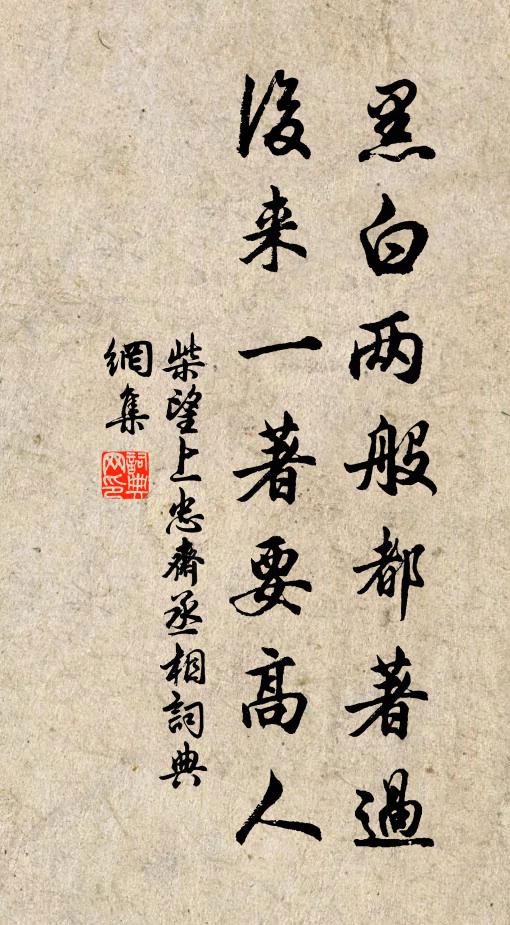 黑白两般都著過
後来一著要高人
柴望上忠齋丞相詞典
網集
詞典網印